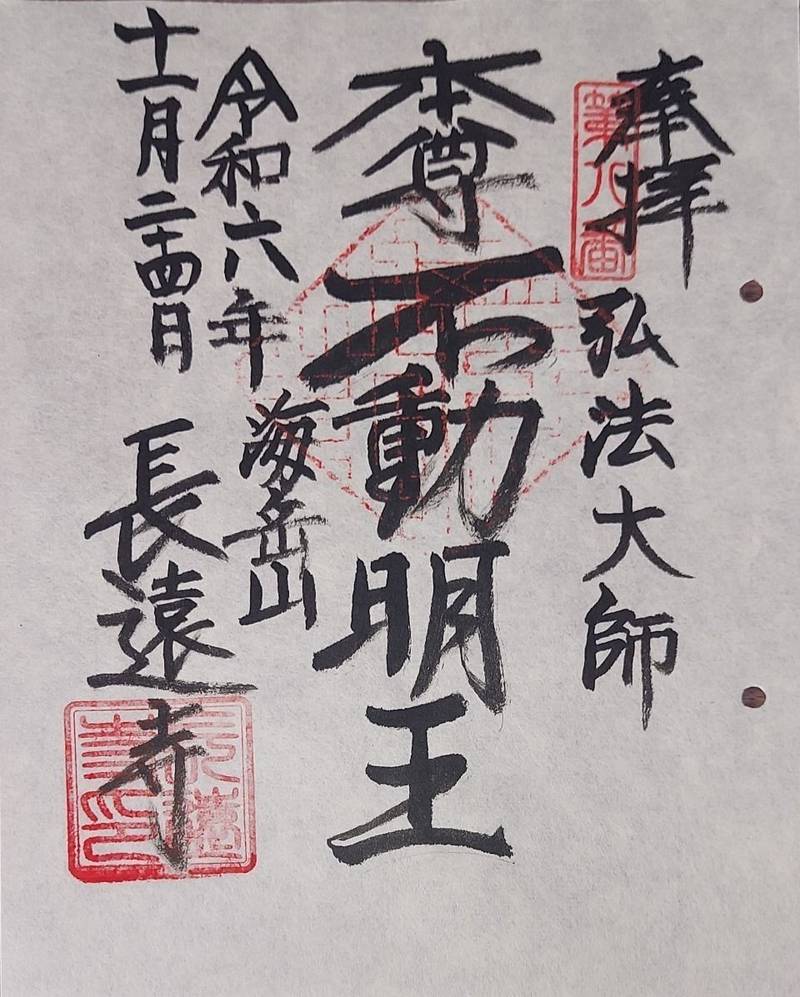 奉拝
弘法大師
第八番
本尊
不動明王
令和六年
十一月二十四日
海岳山
長遠寺